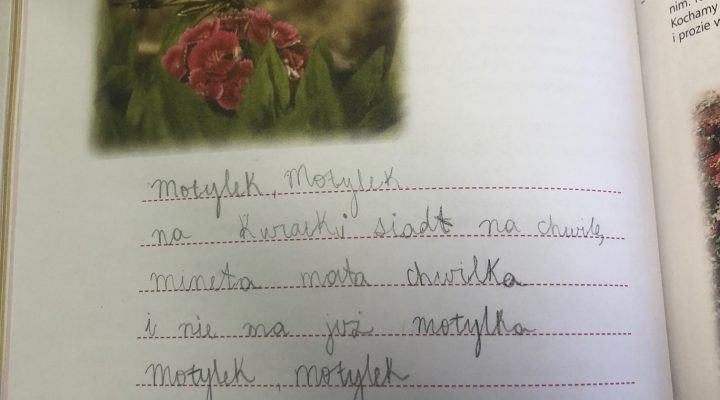 nim.
Kochamy
i prozie w
Motylek, Motylek
na kwiatki siadł na chwilę,
mineła mała chwilka
i nie ma już motylka
Motylek, motylek